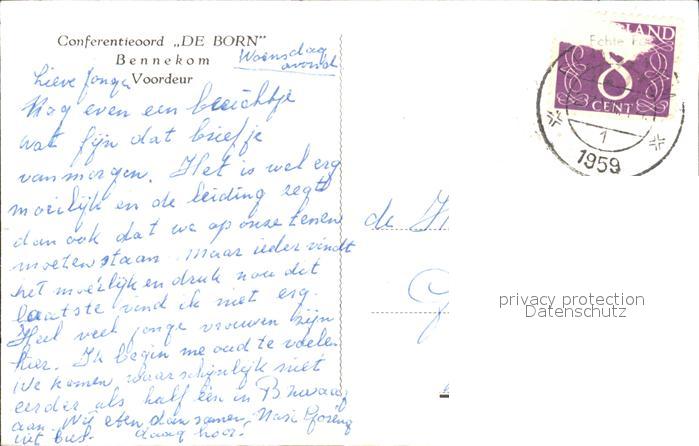 Conferentieoord „DE BORN"
Bennekom
Voordeur
Woensdag
avond.
Lieve Jonge
Nog even een berichtje
wat fijn dat briefje
vanmorgen. Het is wel erg
moeilijk en de leiding zegt
dan ook dat we op onze tenen
moeten staan. Maar ieder vindt
het moeilijk en druk nou dit
laatste vind ik niet erg.
Heel veel jonge vrouwen zijn
hier. Ik begin me oud te voelen
We komen waarschijnlijk niet
eerder als half één in
aan. Wil eten dan samen, Nasi Goreng
uit bus. daag hoor.
LAND
Echte
8
CENT
1
1959
de
privacy protection
Datenschutz